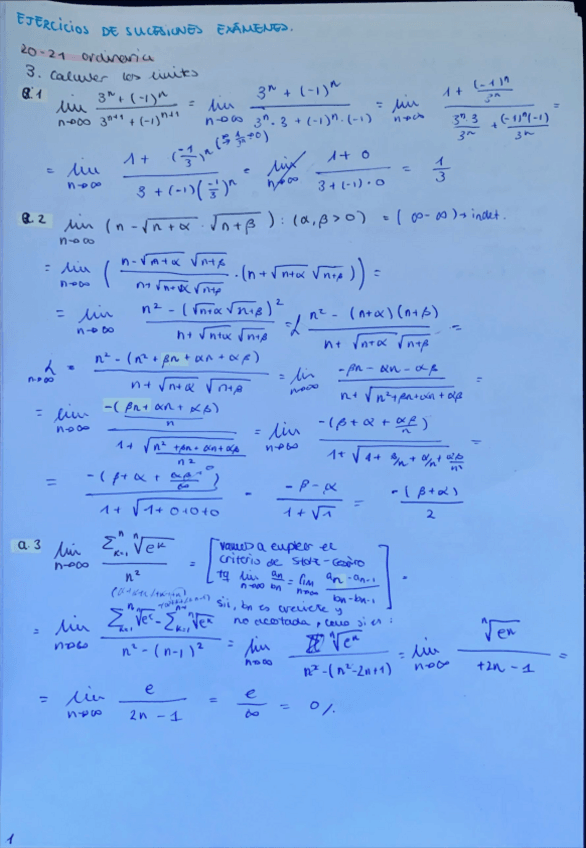 EJERCICIOS DE SUCESIONES EXÁMENES.
20-21 ordinaria
3. Calcular los límites
a.1 lim n→∞ (3^n + (-1)^n)/(3^(n+1) + (-1)^(n+1)) = lim n→∞ (3^n + (-1)^n)/(3^n · 3 + (-1)^n · (-1)) = lim n→∞ (1 + (-1)^n/3^n)/(3^n·3/3^n + (-1)^n(-1)/3^n) =
= lim n→∞ (1 + (-1/3)^n)/(3 + (-1)(-1/3)^n) = lim n→∞ (1 + 0)/(3 + (-1)·0) = 1/3
a.2 lim n→∞ (n - √(n+α) · √(n+β)) : (α, β > 0) = (∞-∞) → indet.
= lim n→∞ ((n - √(n+α) √(n+β))/(n + √(n+α) √(n+β)) · (n + √(n+α) √(n+β))) =
= lim n→∞ (n² - (√(n+α) √(n+β))²)/(n + √(n+α) √(n+β)) = L (n² - (n+α)(n+β))/(n + √(n+α) √(n+β)) =
L n→∞ = (n² - (n² + βn + αn + αβ))/(n + √(n+α) √(n+β)) = lim n→∞ (-βn - αn - αβ)/(n + √(n²+βn+αn+αβ)) =
= lim n→∞ (-(βn + αn + αβ)/n)/(1 + √((n²+βn+αn+αβ)/n²)) = lim n→∞ (-(β + α + αβ/n))/(1 + √(1 + β/n + α/n + αβ/n²)) =
= (-(β + α + αβ/∞ → 0))/(1 + √(1+0+0+0)) = (-β - α)/(1 + √1) = (-(β+α))/2
a.3 lim n→∞ (∑ k=1 n ⁿ√(e^k))/n² = [vamos a emplear el
criterio de Stolz-Cesàro
tq lim n→∞ an/bn = lim n→∞ (an - an-1)/(bn - bn-1)
sii, bn es creciente y
no acotada, como sí es:] =
= lim n→∞ (∑ k=1 n ⁿ√(e^k) - ∑ k=1 n-1 ⁿ√(e^k))/(n² - (n-1)²) = lim n→∞ ⁿ√(e^n)/(n² - (n² - 2n + 1)) = lim n→∞ ⁿ√(e^n)/(+2n - 1) =
= lim n→∞ e/(2n - 1) = e/∞ = 0//.
1